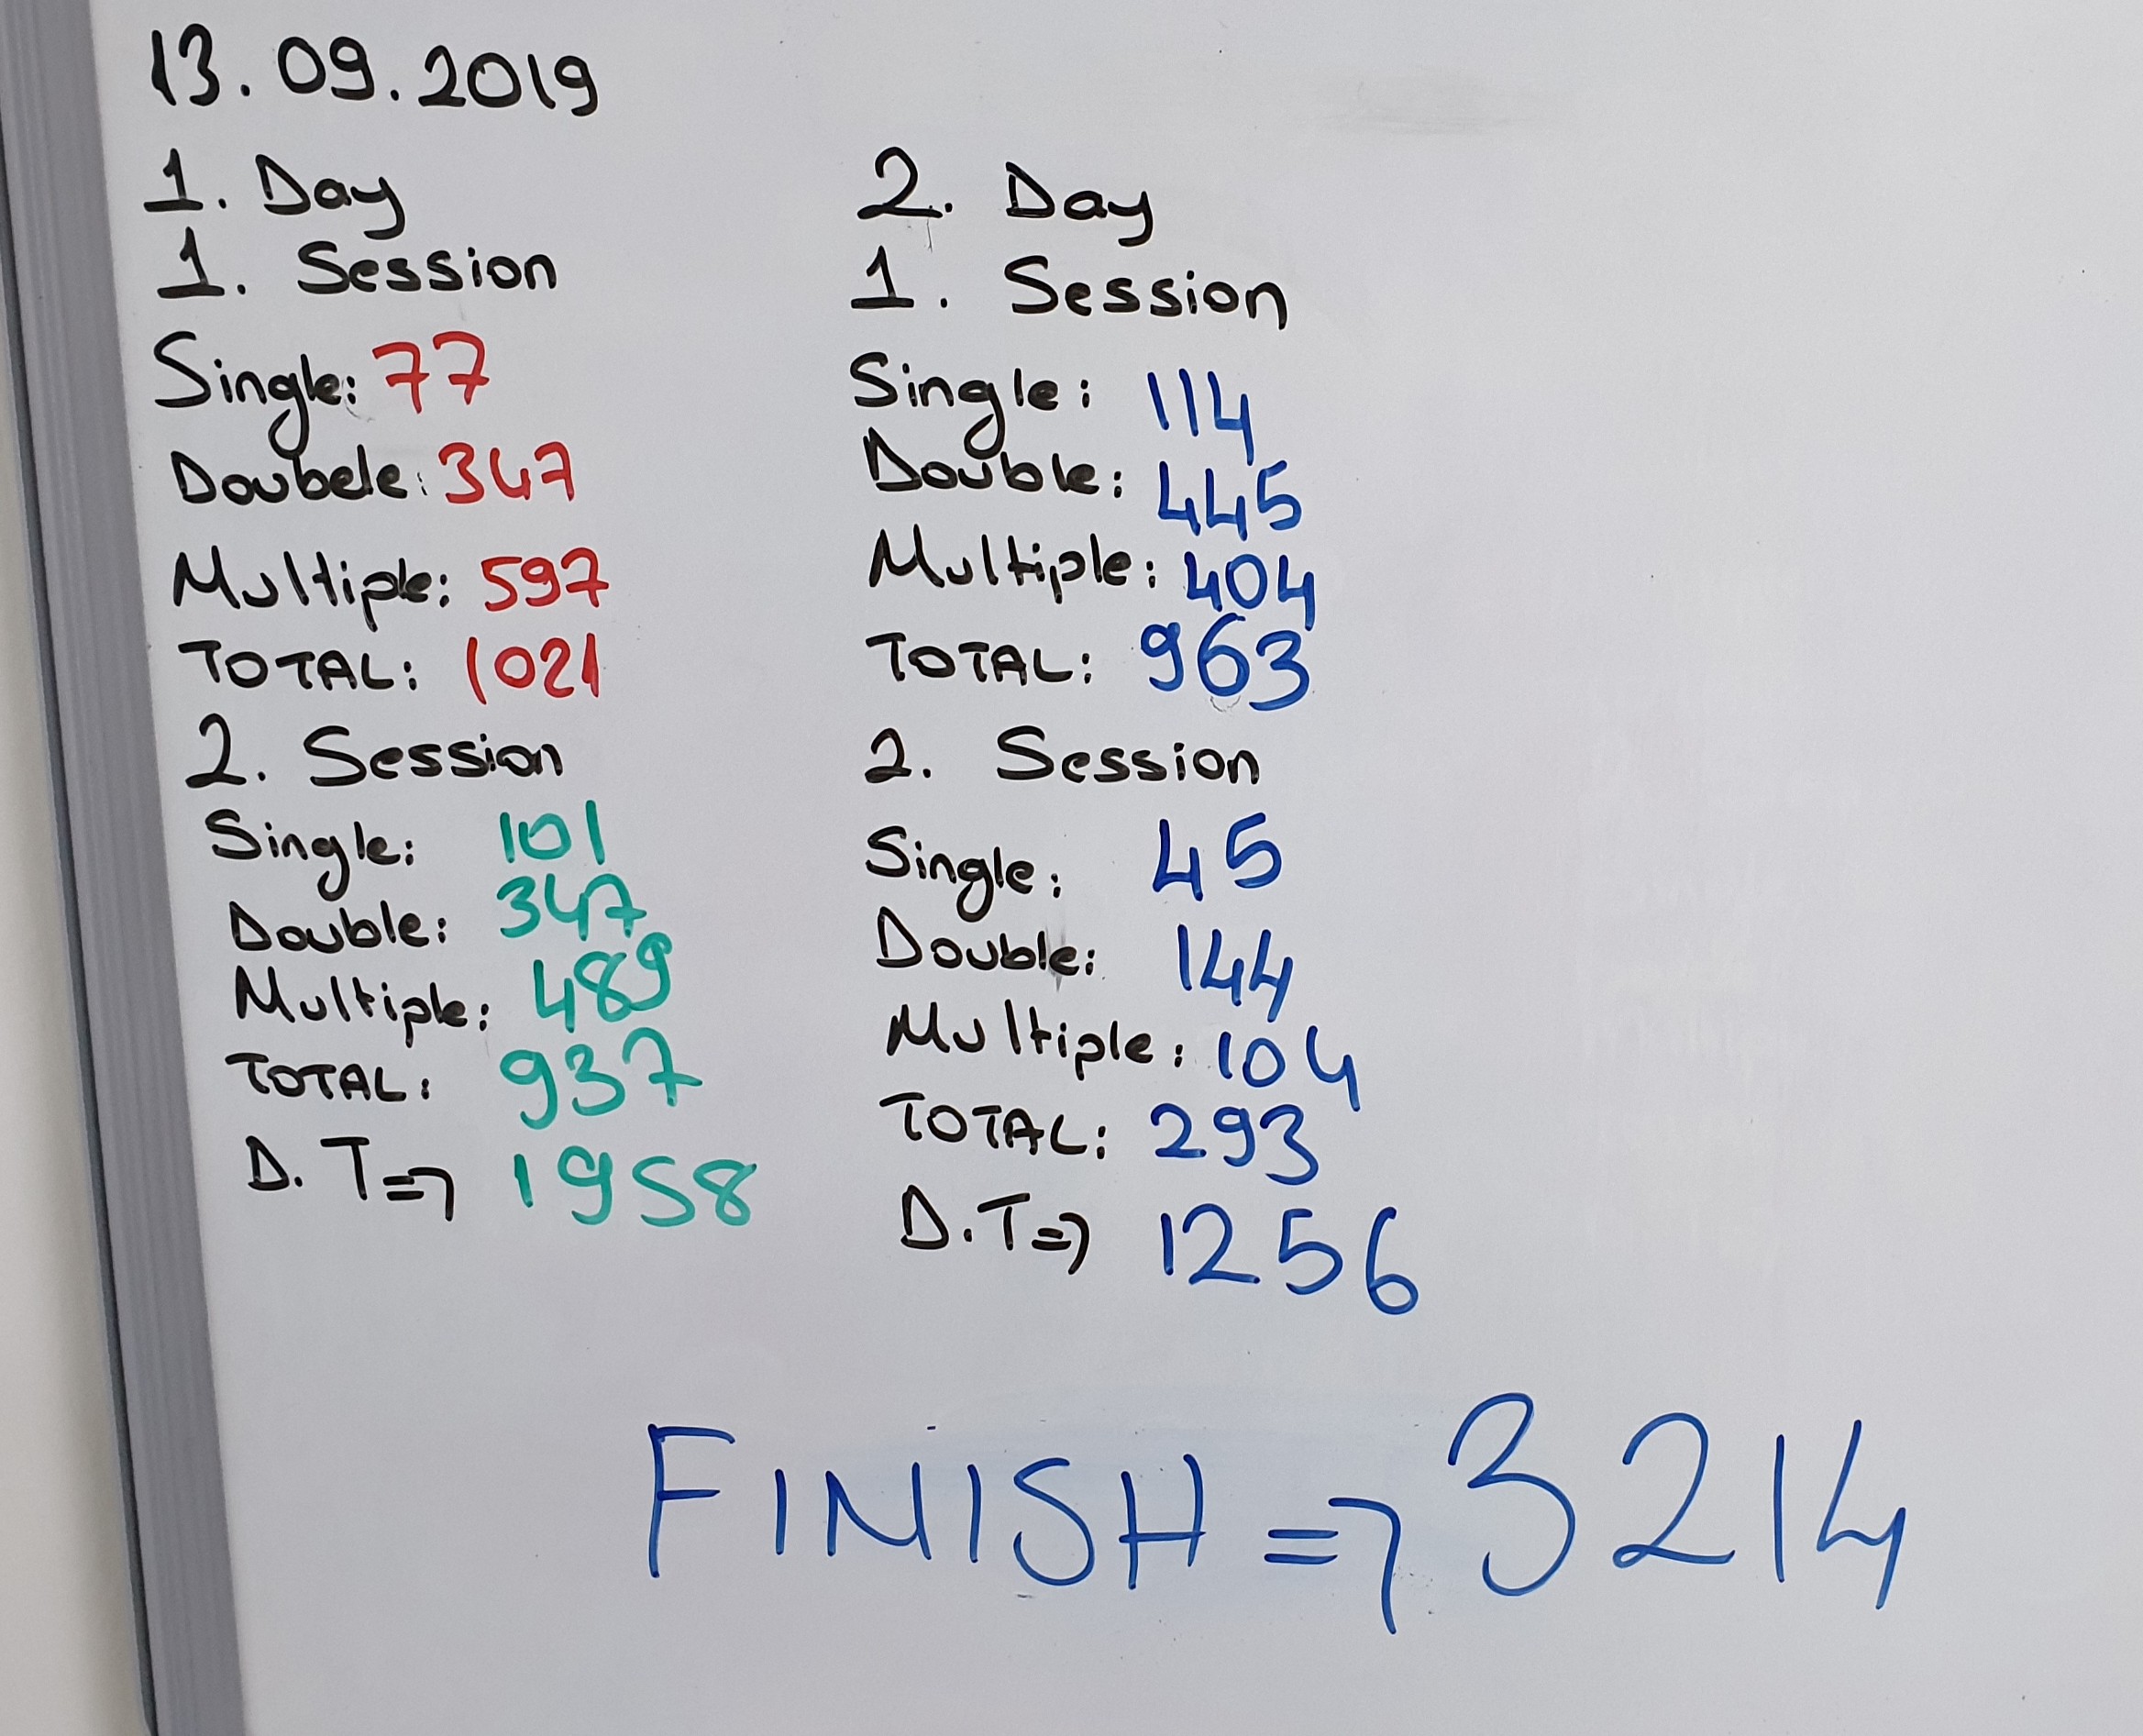 13.09.2019
1. Day
1. Session
Single: 77
Doubele: 347
Multiple: 597
TOTAL: 1021
2. Session
Single: 101
Double: 347
Multiple: 489
TOTAL: 937
D. T=> 1958
2. Day
1. Session
Single: 114
Double: 445
Multiple: 404
TOTAL: 963
2. Session
Single: 45
Double: 144
Multiple: 104
TOTAL: 293
D.T=> 1256
FINISH => 3214